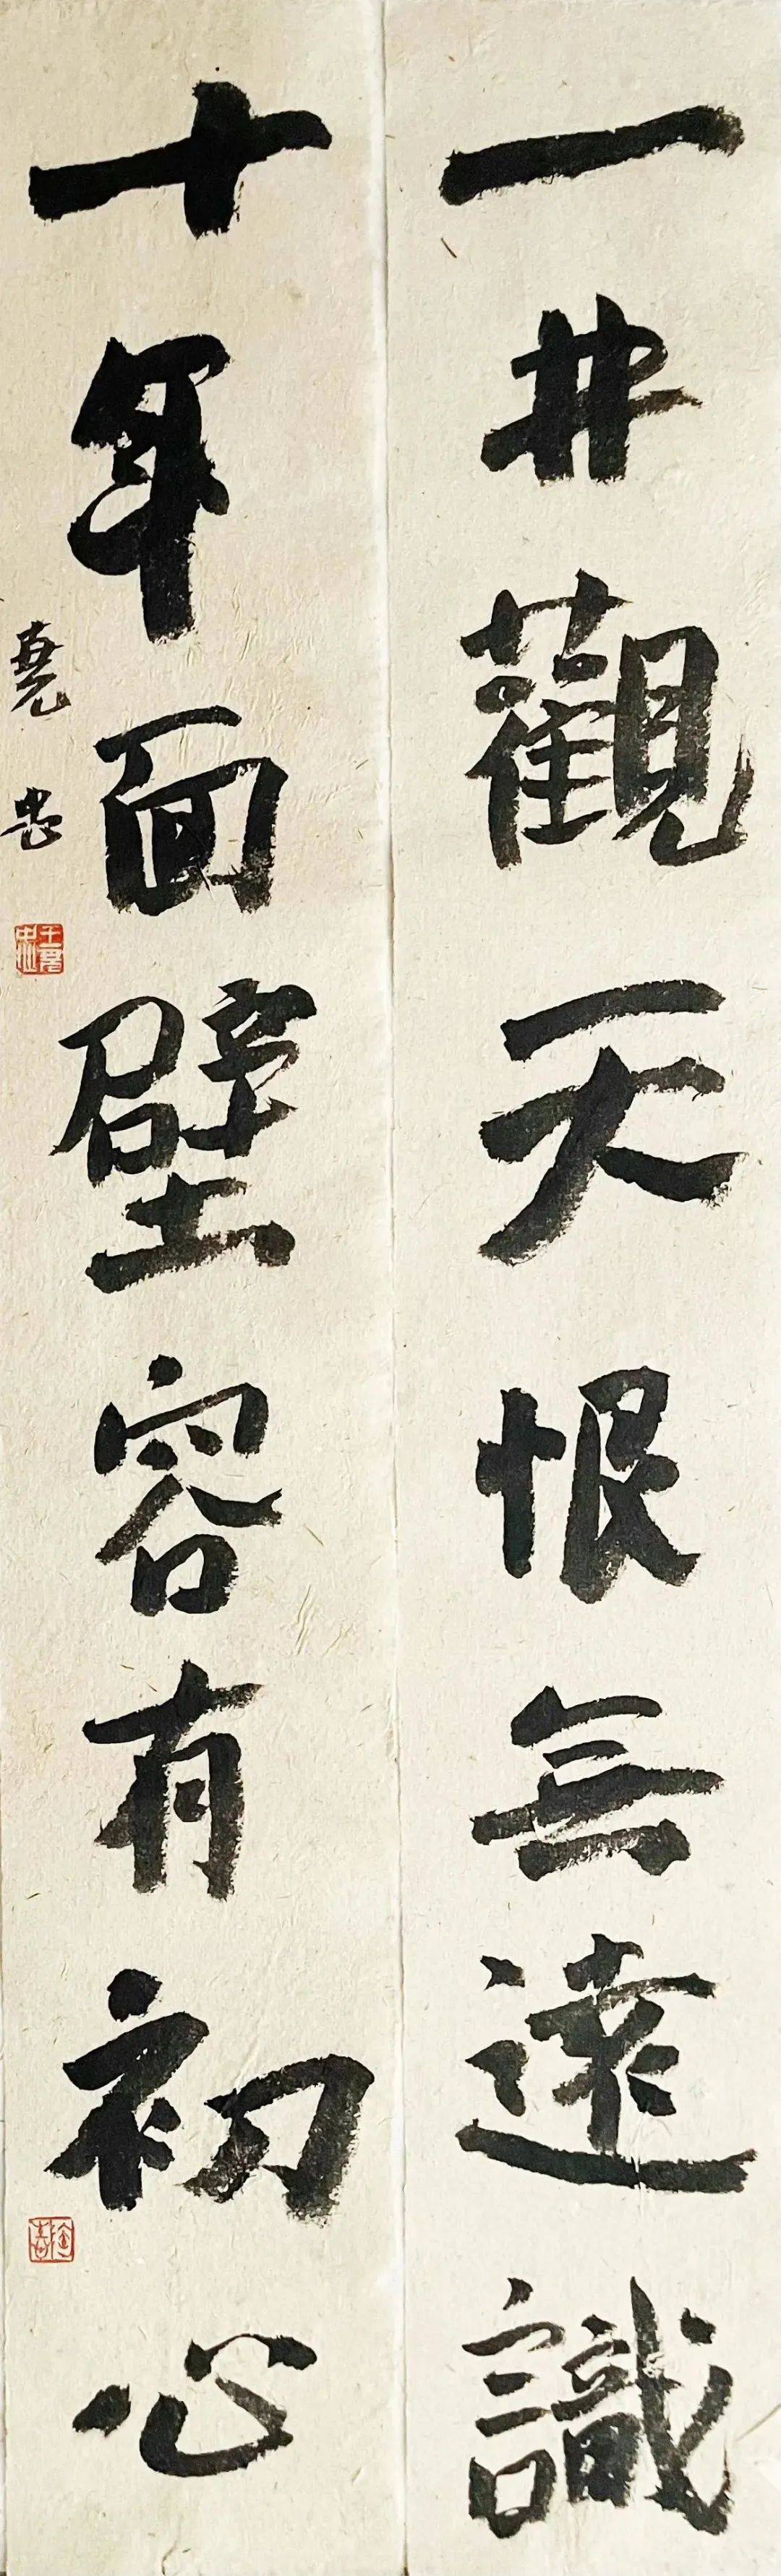 一井觀天恨無遠識
十年面壁容有初心
堯忠